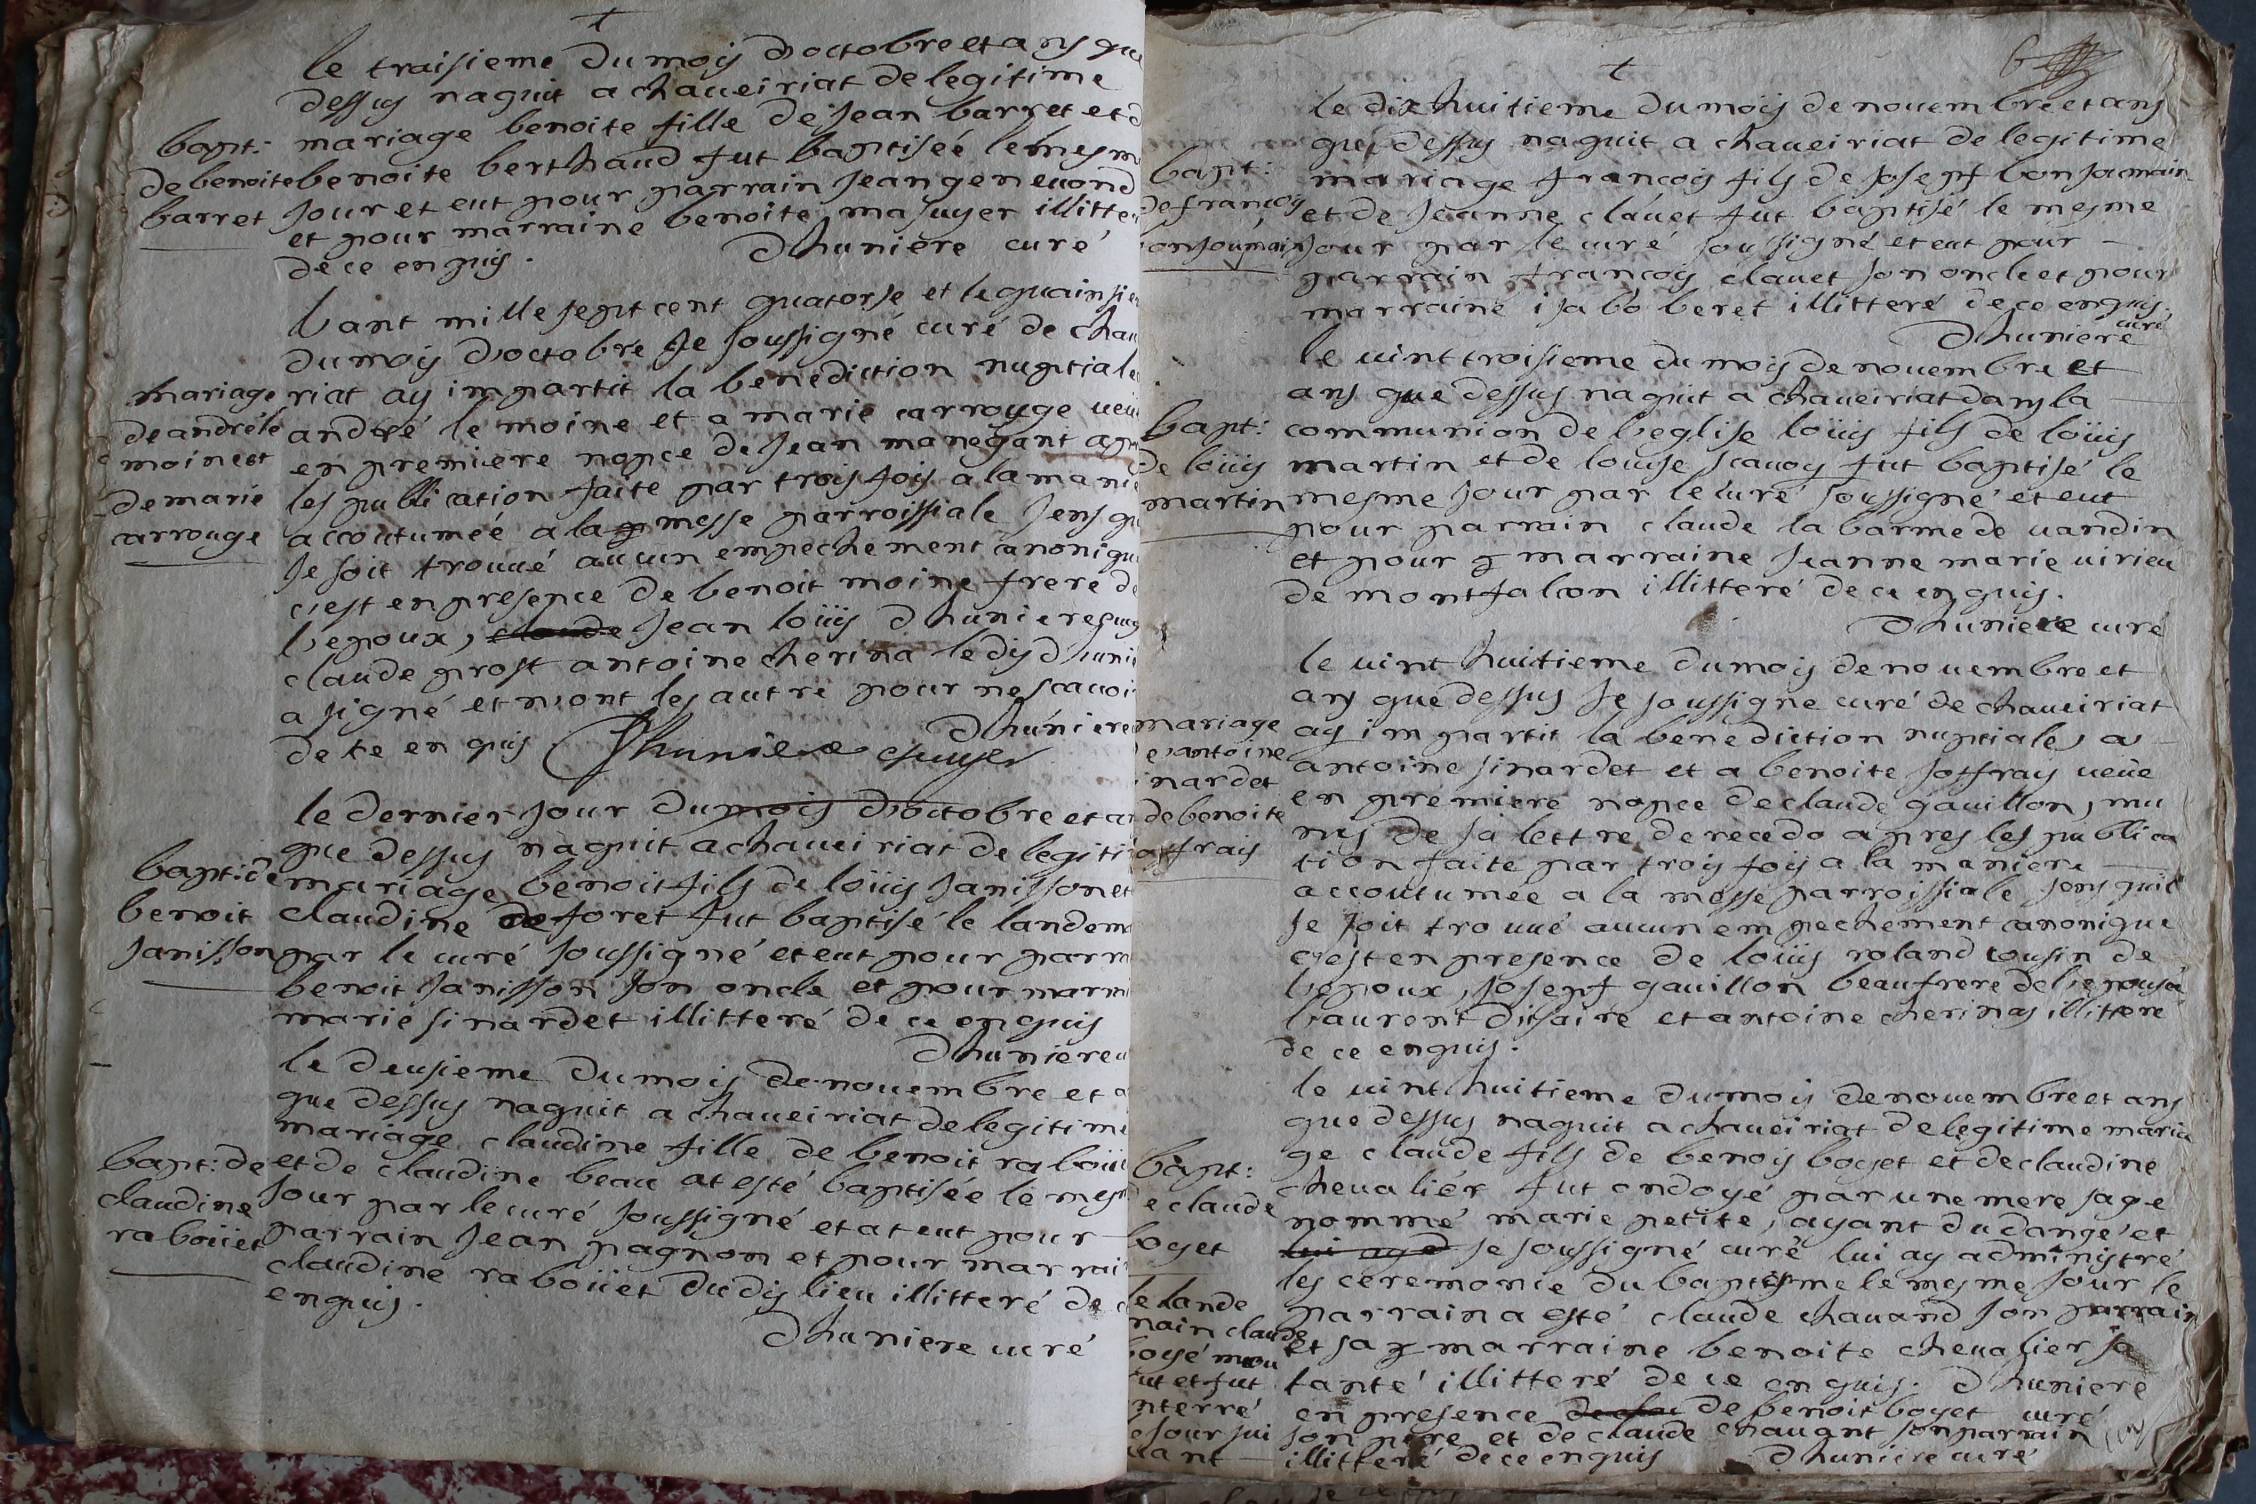 t
le traisieme du moÿ d'octobre et ans que
dessus naquit a chaveiriat de legitime
bapt: mariage benoite fille de jean barret et d
de benoite benoite berthaud fut baptiséé le mesm
barret jour et eut pour parrain jean genevond
et pour marraine benoite masuyer illitter
de ce enquis . dhuniere curé
l'ant mille sept cent quatorse et le quainsie
du moÿ d'octobre je soussigné curé de chav
mariage riat aÿ impartit la benediction nuptiale
de andré le andré le moine et a marie carrouge veuu
moine et en premiere nopce de jean manegant apr
de marie les publication faite par trois fois a la manie
carrouge accoutuméé a la messe parroissiale sens qu
se soit trouué aucun empechement canoniqu
c'est en presence de benoit moine frere de
l'epoux, claude jean loüis dhuniere
claude prost antoine cherina ledis d'huni
a signé et n'ont les autre pour ne scauoi
dhuniere
de ce en quis Dhuniere
le dernier jour du mois d'octobre et a
que dessus naquit a chaveiriat de legiti
bapt: de mariage benoit fils de loüis janisson et
benoit claudine de foret fut baptisé le landem
janisson par le curé soussigné et eut pour parr
benoit janisson son oncle et pour marr
marie sinardet illitteré de ce enquis
dhuniere
le deusieme du mois de nouembre et a
que dessus naquit a chaveiriat de legitime
mariage claudine fille de benoit raboüe
bapt: de et de claudine beau at esté baptisée le mesm
claudine jour par le curé soussigné et at eut pour
raboüet parrain jean pagnon et pour marrai
claudine raboüet dudis lieu illitteré de c
enquis .
dhuniere curé
6
t
le dix huitieme du moÿs de nouembre et ans
que dessus naquit a chaveiriat de legitime
bapt: mariage françois fils de josepf bonjoumain
de françois et de jeanne clauet fut baptisé le mesme
onjoumain jour par le curé soussigné et eut pour
parrain françois clauet son oncle et pour
marraine isabo beret illitteré de ce enquis.
dhuniere curé
le uint troisieme du moÿs de nouembre et
ans que dessus naquit a chaveiriat dans la
bapt: communion de l'eglise loüis fils de loüis
de loüis martin et de louise scauoy fut baptisé le
martin mesme jour par le curé soussigné et eut
pour parrain claude la barme de uandin
et pour marraine jeanne marie uirieu
de montfalcon illitteré de ce enquis.
dhuniere curé
le uint huitieme du mois de nouembre et
ans que dessus je soussigne curé de chaveiriat
mariage aÿ impartit la benediction nuptiales a
e antoine antoine sinardet et a benoite joffray ueüe
inardet en premiere nopce de claude gauillon, mu
de benoite nis de sa lettre de recedo apres les publica
offray tion faite par trois fois a la maniere
accoutumée a la messe parroissiale sens quil
se soit trouué aucun empechement canonique
c'est en presence de loüis roland cousin de
l'epoux, josepf gauillon beaufrere de l'epousé
laurent disaire et antoine cherinas illittere
de ce enquis .
le uint huitieme du mois de nouembre et ans
que dessus naquit a chaveiriat de legitime maria
bapt: ge claude fils de benoÿ boyet et de claudine
e claude cheualier fut ondoyé par une mere sage
boyet nommé marie petite, ayant du dangé et
lui aÿé je soussigné curé lui aÿ administré
les ceremonie du baptesme le mesme jour le
le lande parrain a esté claude chauand son parrain
main claude et sa marraine benoite cheualier sa
boyé mou tante illitteré de ce enquis. dhuniere
rut et fut en presence de benoit boyet curé
nterré son pere et de claude chauant son parrain
e jour sui illitteré de ce enquis dhuniere curé
uant